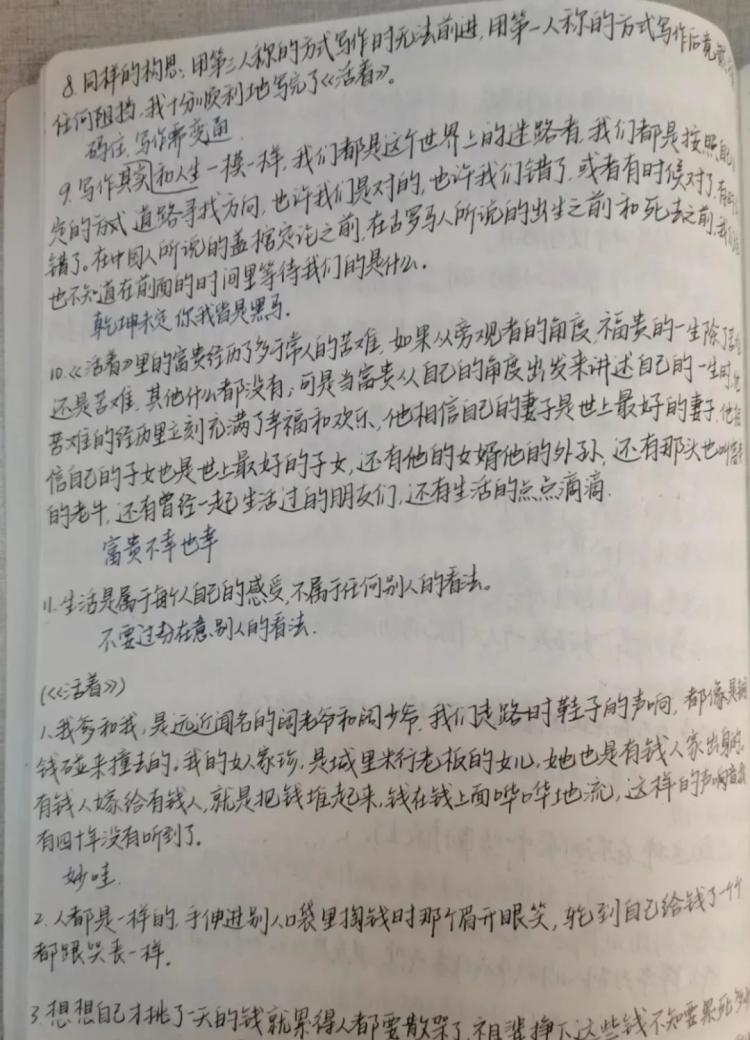 8.同样的构思,用第三人称的方式写作时无法前进,用第一人称的方式写作后竟然
任何阻挡,我十分顺利地写完了《活着》。
码住,写作需变通
9.写作其实和人生一模一样,我们都是这个世界上的迷路者,我们都是按照自己
定的方式道路寻找方向,也许我们是对的,也许我们错了,或者有时候对了,有时
错了。在中国人所说的盖棺定论之前,在古罗马人所说的出生之前和死去之前,我们
也不知道在前面的时间里等待我们的是什么.
乾坤未定你我皆是黑马.
10.《活着》里的富贵经历了多于常人的苦难,如果从旁观者的角度,福贵的一生除了苦难
还是苦难,其他什么都没有;可是当富贵从自己的角度出发来讲述自己的一生时,他
苦难的经历里立刻充满了幸福和欢乐,他相信自己的妻子是世上最好的妻子,他相
信自己的子女也是世上最好的子女,还有他的女婿他的外孙,还有那头也叫富贵
的老牛,还有曾经一起生活过的朋友们,还有生活的点点滴滴.
富贵不幸也幸
11.生活是属于每个人自己的感受,不属于任何别人的看法。
不要过分在意别人的看法.
(《活着》)
1.我爹和我,是远近闻名的阔老爷和阔少爷,我们走路时鞋子的声响,都像是铜
钱碰来撞去的。我的女人家珍,是城里米行老板的女儿,她也是有钱人家出身的.
有钱人嫁给有钱人,就是把钱堆起来,钱在钱上面哗哗地流,这样的声响我
有四十年没有听到了。
妙哇.
2.人都是一样的,手伸进别人口袋里掏钱时那个眉开眼笑,轮到自己给钱了一个个
都跟哭丧一样.
3.想想自己才挑了一天的钱就累得人都要散架了,祖辈挣下这些钱不知要累死多少